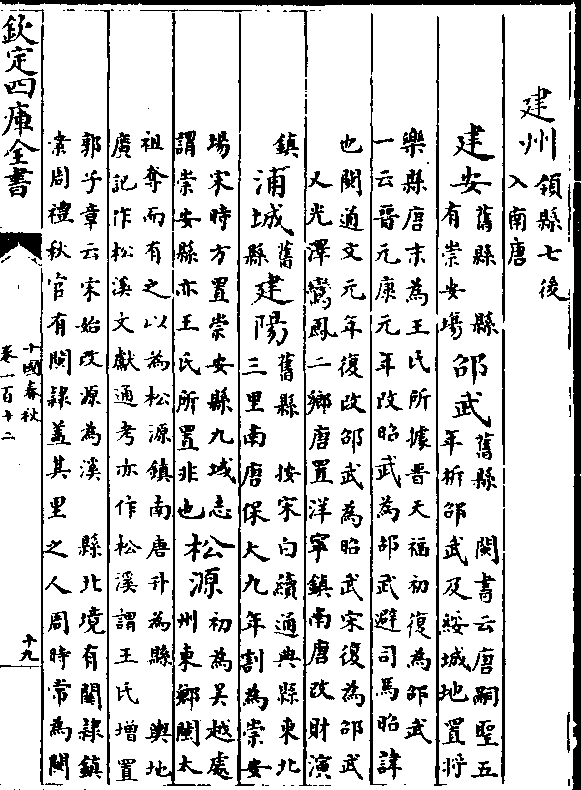 建州領縣七後
入南唐
建安舊縣 縣
有崇安場
邵武舊縣 閩書云唐嗣聖五
年析邵武及綏城地置將
樂縣唐末為王氏所據晋天福初復為邵武
一云晋元康元年改昭武為邵武避司馬昭諱
也閩通文元年復改邵武為昭武宋復為邵武
又光澤鸞鳳二鄉唐置洋寧鎮南唐改財演
鎮
浦城舊
縣
建陽舊縣 按宋白續通典縣東北
三里南唐保大九年割為崇安
場宋時方置崇安縣九域志
謂崇安縣亦王氏所置非也
松源初為吳越處
州東鄉閩太
祖奪而有之以為松源鎮南唐升為縣 輿地
廣記作松溪文獻通考亦作松溪謂王氏增置
郭子章云宋始改源為溪 縣北境有關隸鎮
案周禮秋官有閩隸蓋其里之人周時常為閩
欽定四庫全書
十國春秋
卷一百十二
十九